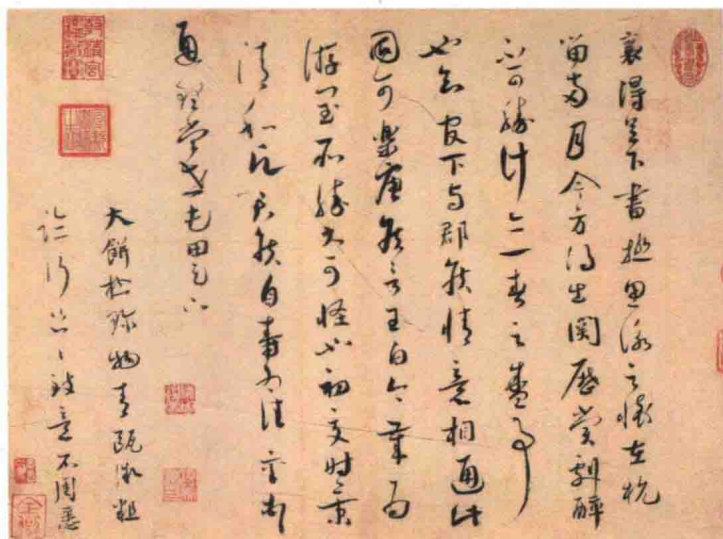 襄得足下書極思詠之懷在杭
留兩月今方得出關歷賞劇醉
不可勝計亦一春之盛事
也知官下與郡侯情意相通此
固可樂唐侯言王白今歲為
游閏所勝大可怪也初夏時景
清和願君侯自壽為佳襄頓
通理當世屯田足下
大餅極珍物青甌微粗
臨行匆匆致意不周悉